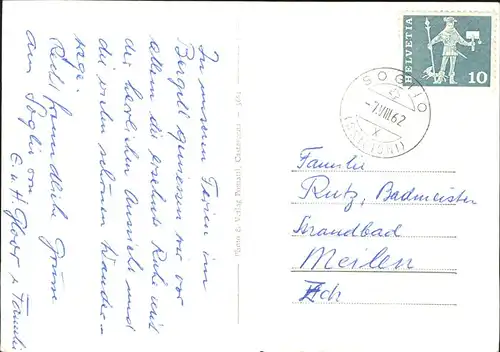 In unseren Ferien im
Bergell geniessen wir vor
allem die ersehnte Ruhe mit
der herrlichen Aussicht und
die vielen schönen Wander-
wege.
Recht freundliche Grüsse
am Söglio von
E. u. H. & Familie
Photo & Verlag Castasegna
HELVETIA
10
SOGLIO
-7.VIII.62
X
Familie
Rutz, Badmeister
Strandbad
Meilen
Zch